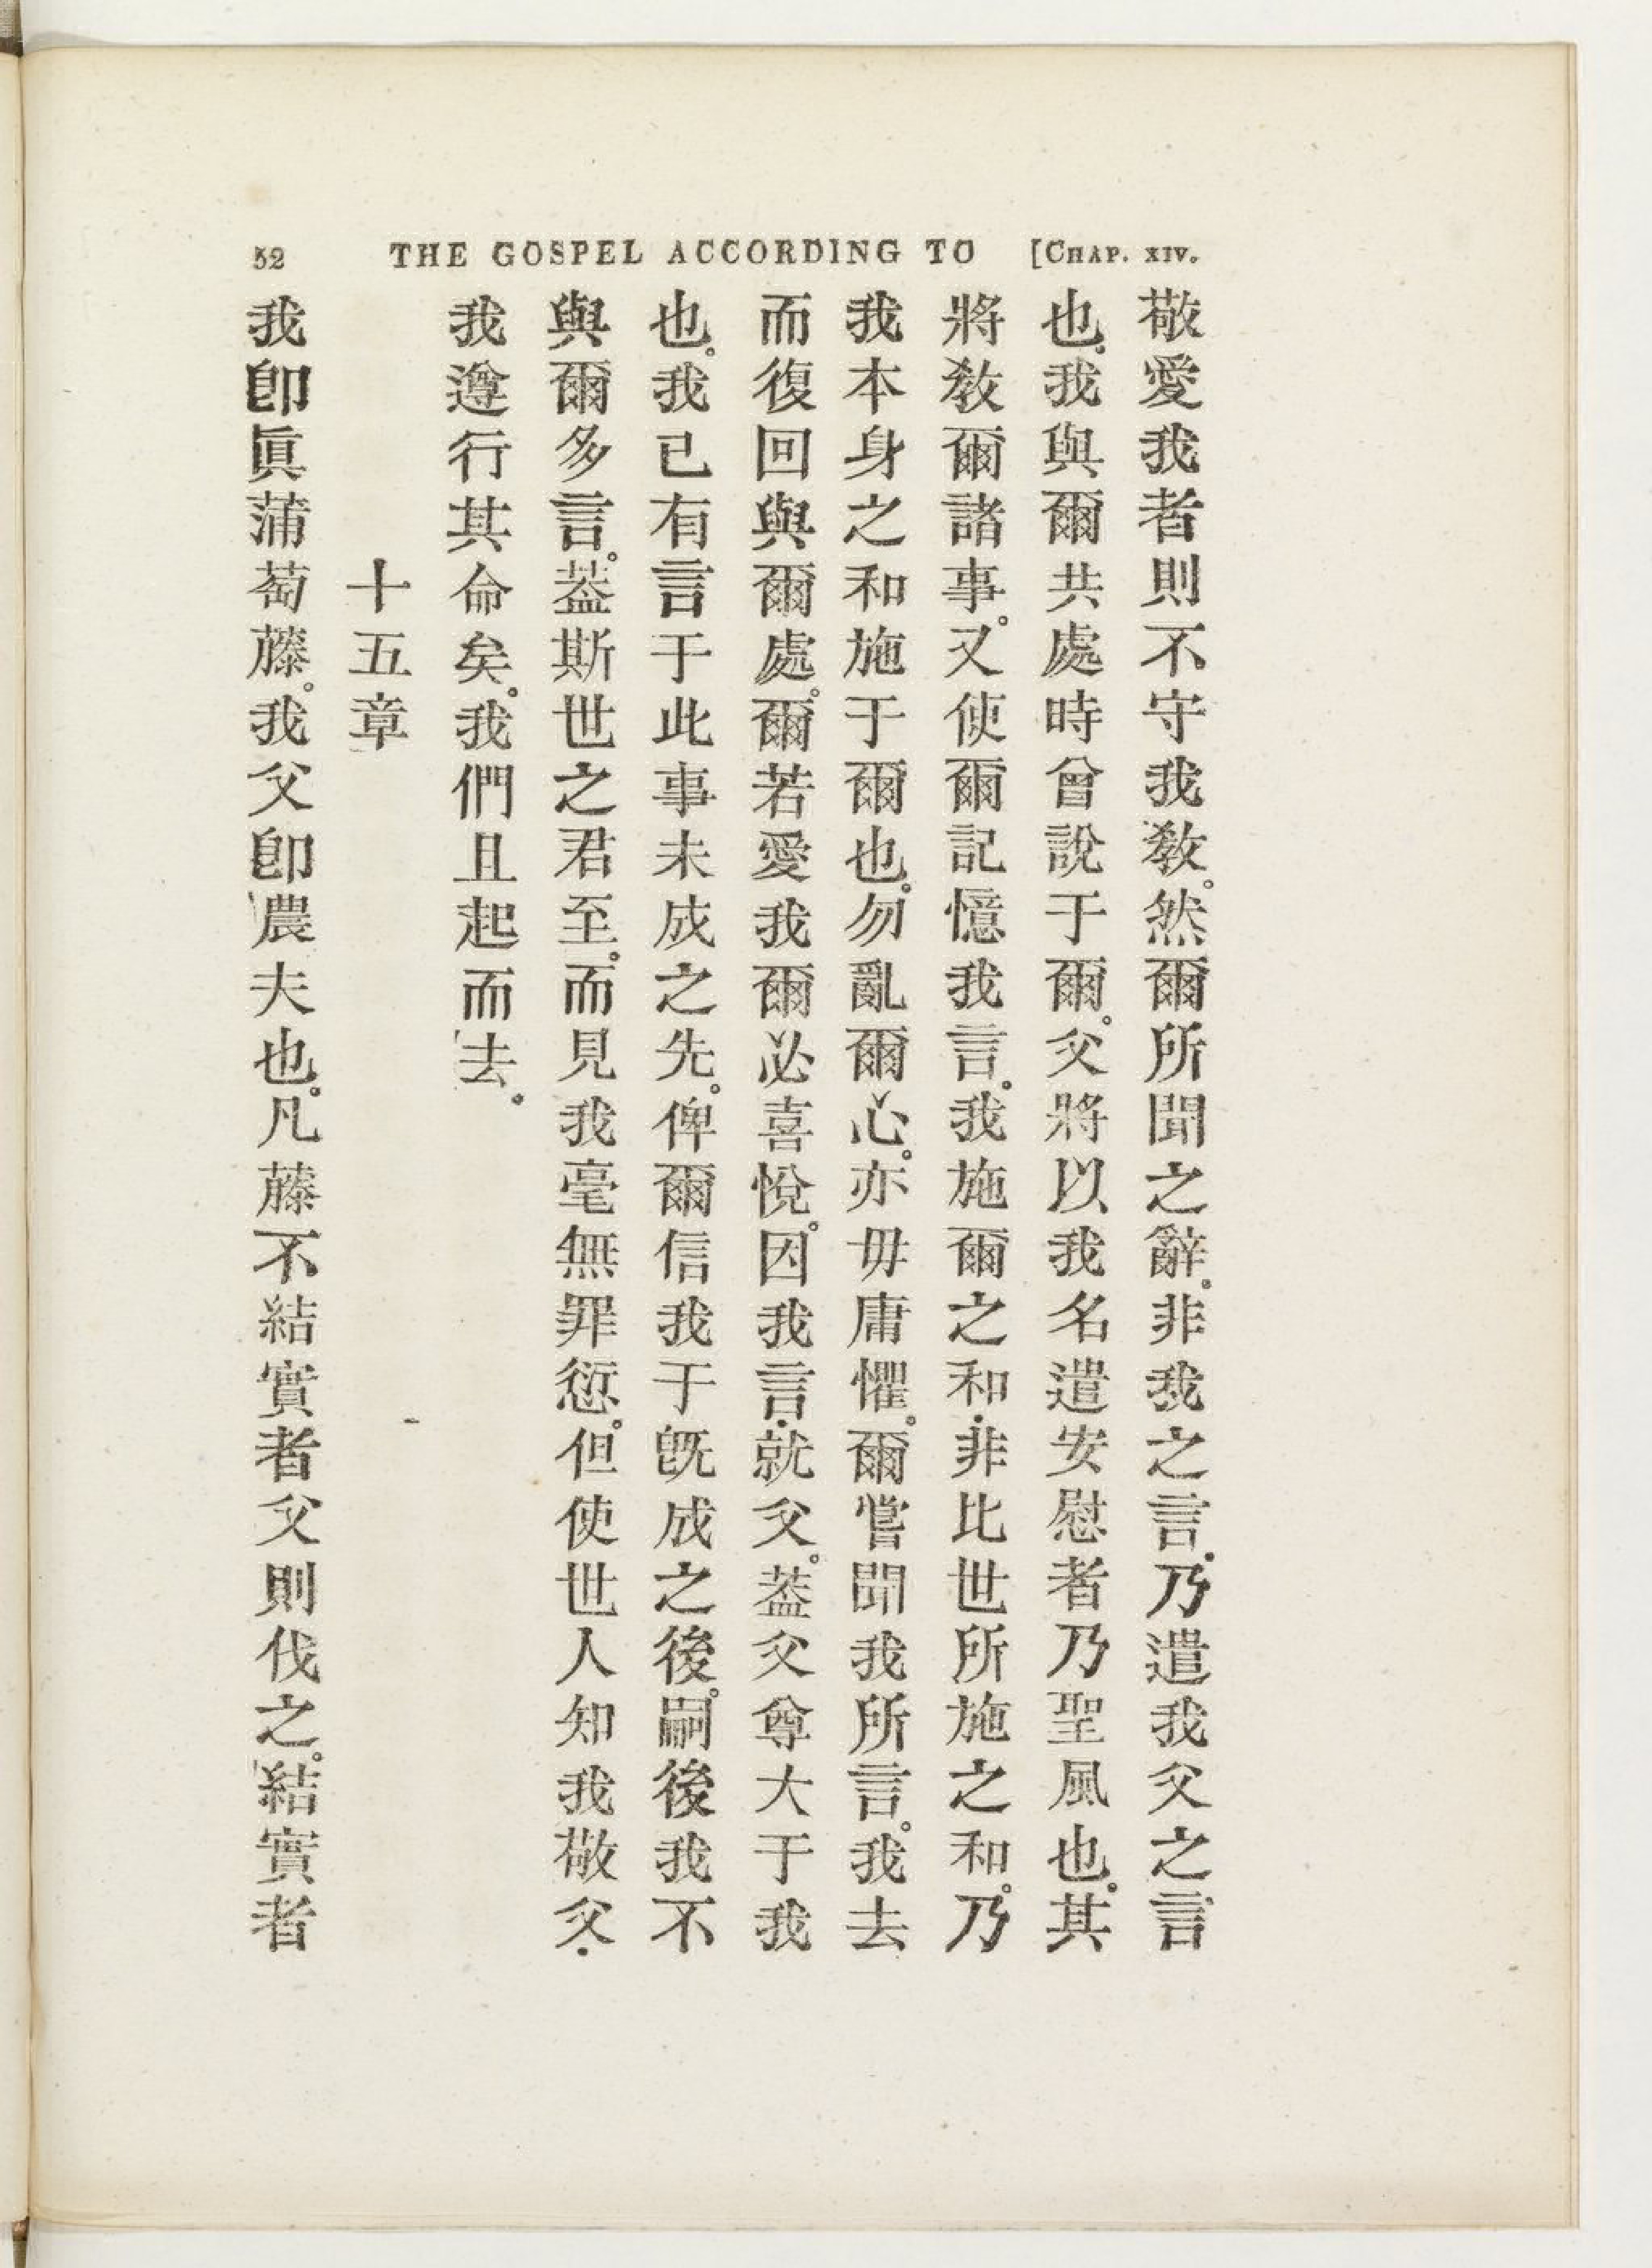 52 THE GOSPEL ACCORDING TO [CHAP. XIV.
敬愛我者則不守我敎。然爾所聞之辭。非我之言.乃遣我父之言
也。我與爾共處時曾說于爾。父將以我名遣安慰者乃聖風也。其
將敎爾諸事。又使爾記憶我言。我施爾之和.非比世所施之和。乃
我本身之和施于爾也。勿亂爾心。亦毋庸懼。爾嘗聞我所言。我去
而復回與爾處。爾若愛我爾必喜悅。因我言.就父。葢父尊大于我
也。我已有言于此事未成之先。俾爾信我于旣成之後。嗣後我不
與爾多言。葢斯世之君至。而見我毫無罪愆。但使世人知我敬父.
我遵行其命矣。我們且起而去。
十五章
我卽眞蒲萄藤。我父卽農夫也。凡藤不結實者父則伐之。結實者